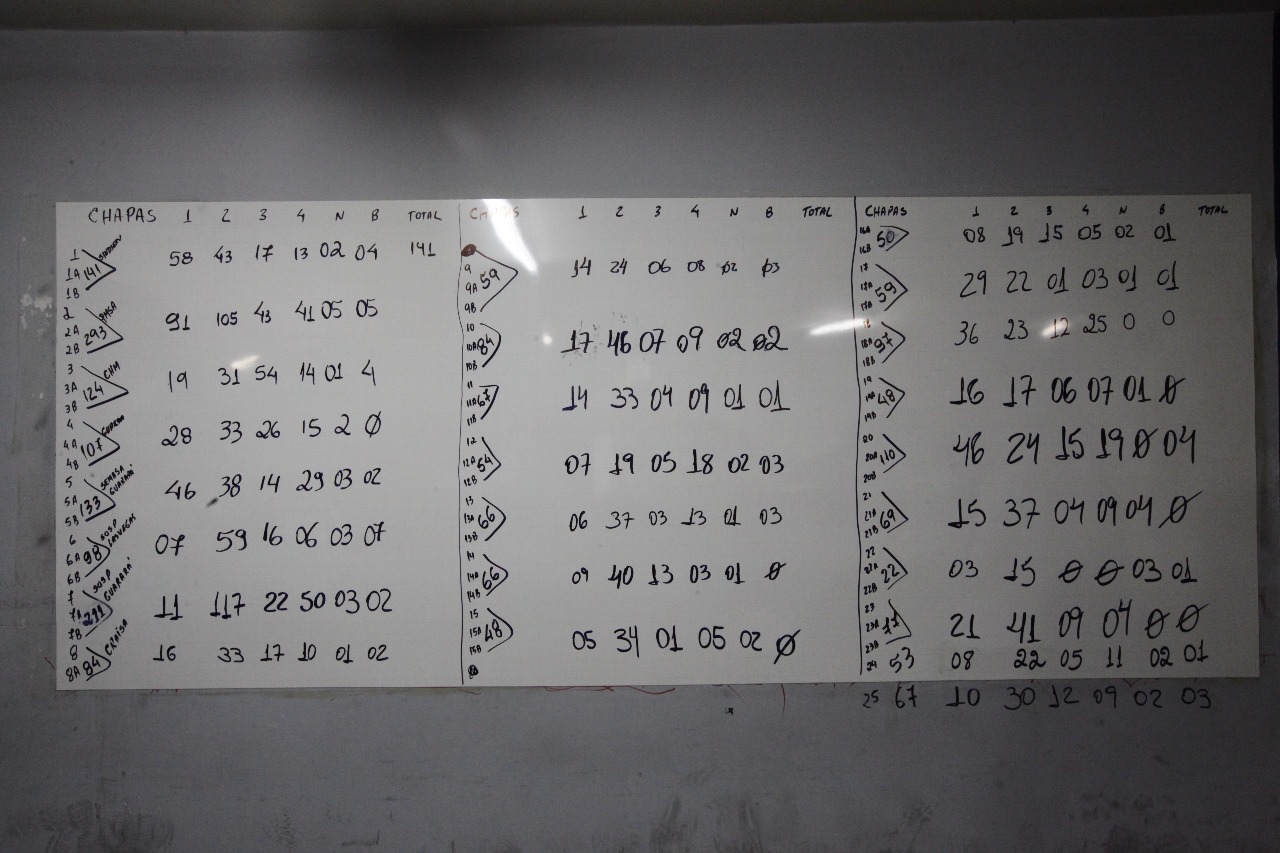 CHAPAS 1 2 3 4 N B TOTAL
1
1A 141 58 43 17 13 02 04 141
1B
2
2A 293 PMSA 91 105 43 41 05 05
2B
3
3A 124 CHM 19 31 54 14 01 4
3B
4
4A 107 28 33 26 15 2 Ø
4B
5
5A 133 SEMASA GUARARÁ 46 38 14 29 03 02
5B
6
6A 98 SOSP 07 59 16 06 03 07
6B
7
7A SOSP GUARARÁ 11 117 22 50 03 02
7B
8
8A 84 CRAISA 16 33 17 10 01 02
CHAPAS 1 2 3 4 N B TOTAL
9
9A 59 14 24 06 08 02 03
9B
10
10A 84 17 46 07 09 02 02
10B
11
11A 67 14 33 04 09 01 01
11B
12
12A 54 07 19 05 18 02 03
12B
13
13A 66 06 37 03 13 01 03
13B
14
14A 66 09 40 13 03 01 Ø
14B
15
15A 48 05 34 01 05 02 Ø
15B
CHAPAS 1 2 3 4 N B TOTAL
16A 50 08 19 15 05 02 01
16B
17
17A 59 29 22 01 03 01 01
17B
18
18A 97 36 23 12 25 0 0
18B
19
19A 48 16 17 06 07 01 Ø
19B
20
20A 110 46 24 15 19 Ø 04
20B
21
21A 69 15 37 04 09 04 Ø
21B
22
22A 22 03 15 Ø Ø 03 01
22B
23
23A 21 41 09 04 Ø Ø
24 53 08 22 05 11 02 01
25 67 10 30 12 09 02 03